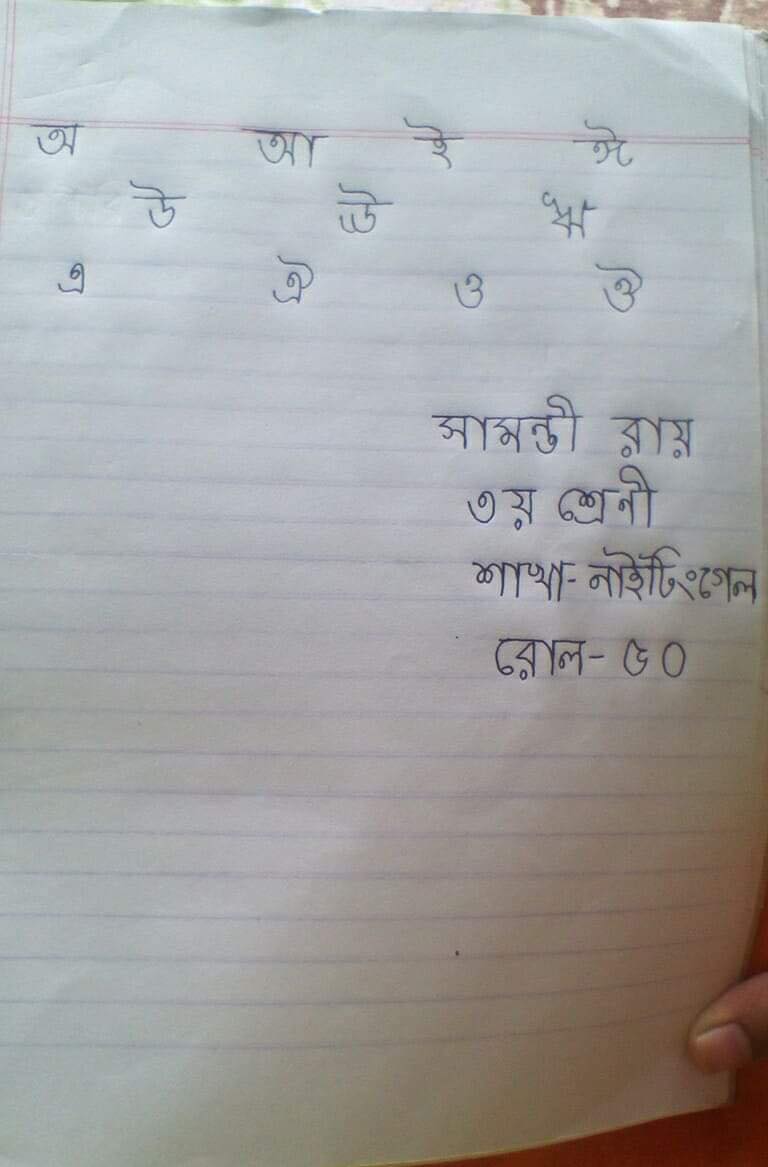 অ আ ই ঈ
উ ঊ ঋ
এ ঐ ও ঔ
সামন্তী রায়
৩য় শ্রেনী
শাখা- নাইটিংগেল
রোল- ৫০